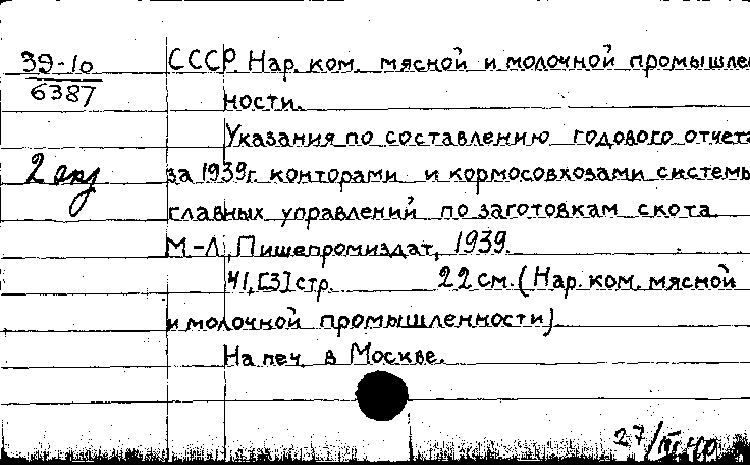 39-10
6387
2 экз
СССР. Нар. ком. мясной и молочной промышлен
ности.
Указания по составлению годового отчета
за 1939г. конторами и кормосовхозами системы
главных управлений по заготовкам скота.
М.-Л., Пишепромиздат, 1939.
41, [3] стр. 22 см. (Нар. ком. мясной
и молочной промышленности)
Напеч. в Москве.
27/III 40